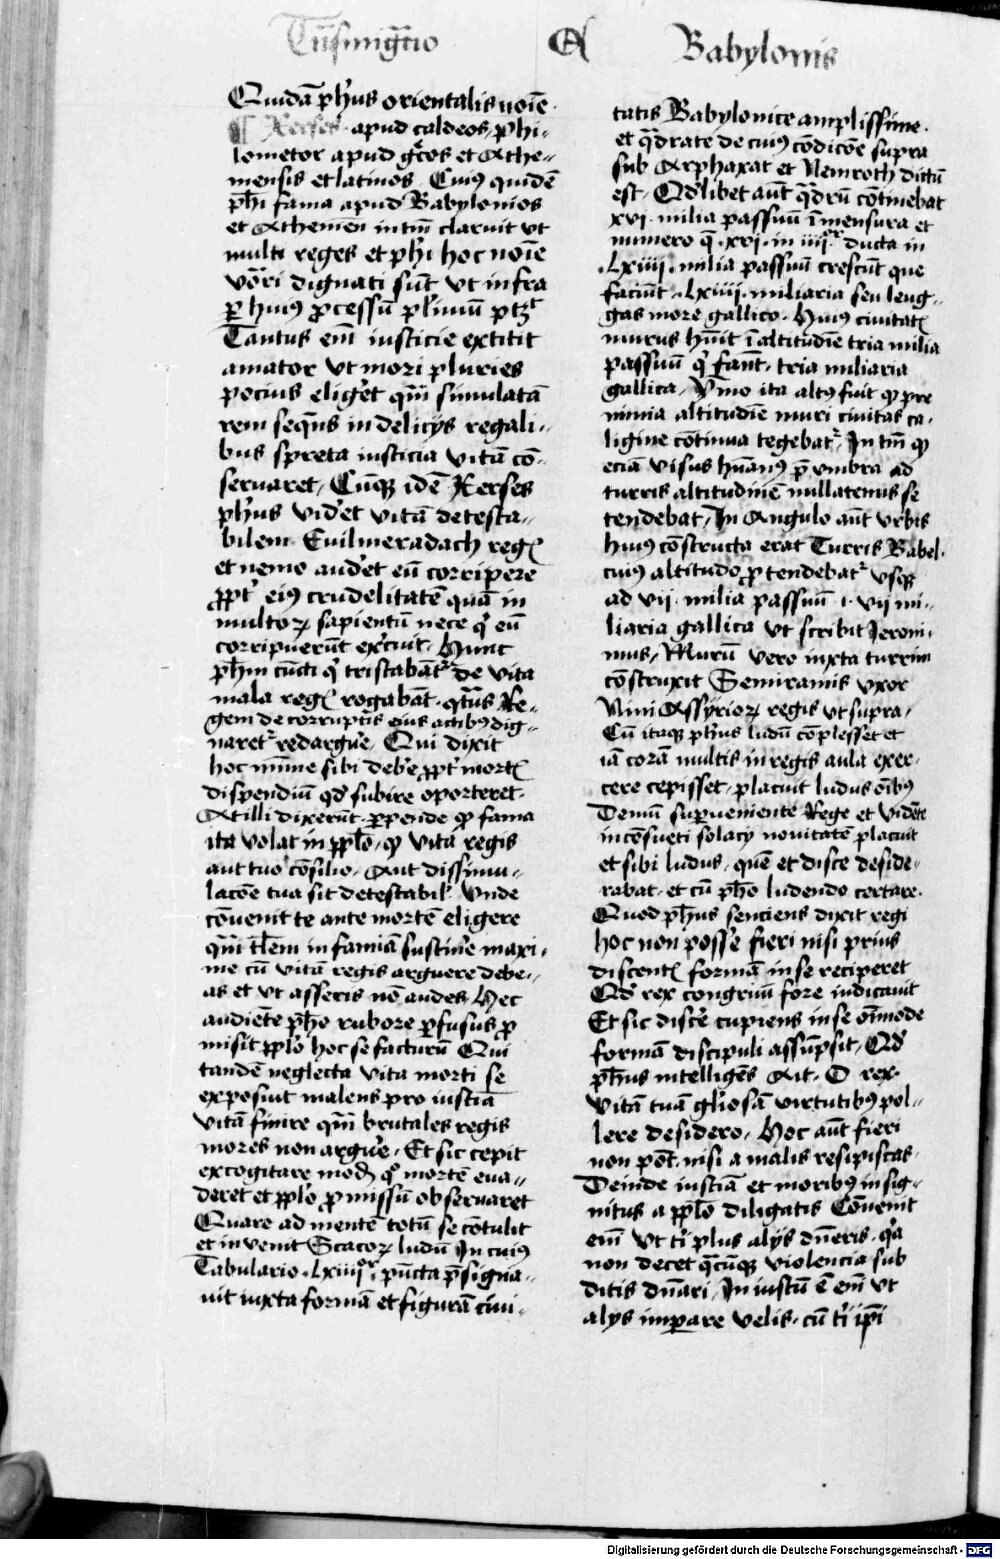 Tn̄smig̃cio A Babylonis
Quidā ph̄us orientalis noīe
¶ Xerses apud caldeos, phi-
lometor apud gͨos et Athe-
niensis et latinos. Cuiꝰ quidē
ph̄i fama apud Babylonios
et Atheniēn intm̄ claruit vt
multi reges et ph̄i hoc noīe
vōri dignati sūt vt infra
ꝑ huiꝰ ꝓcessū plīmū ptꝫ
Tantus em̄ iusticie extitit
amator vt mori pluries
pocius eligēt qm̄ simulatā
rem seqn̄s in delicijs regali-
bus spreta iusticia vitā cō-
seruaret, Cūqꝫ idē Xerses
ph̄us vidēt vitā detesta-
bilem Euilmeradach reg̃
et nemo audēt eū corripere
ꝓpt̄ eiꝰ crudelitatē quā in
multoꝝ sapientū nece q̇ eū
corripuerūt ex̄cuit. Hunc
ph̄m cūcti q̇ tristabāt̄ de vita
mala reg̃ rogabāt. qt̄ns Re-
gem de corruptis eius actibꝰ dig-
naret᷑ redargūe, Qui dixit
hoc mīme sibi debē ꝓpt̄ mort̃
dispendiū qd̄ subire oporteret.
At illi dixerūt ꝑpende ꝙ fama
ita volat in ppl̄o, ꝙ vita regis
aut tuo cōsilio. Aut dissimu-
lacōe tua sit detestabil̃ Vnde
cōuenit te ante mortē eligere
qm̄ tl̄em infamiā sustinē maxi-
me cū vitā regis arguere debe-
as et vt asseris nō audes, Hec
audiēte ph̄o rubore ꝑfusus ꝓ
misit ppl̄o hoc se facturū Qui
tandē neglecta vita morti se
exposuit malens pro iustīa
vitā finire qm̄ brutales regis
mores non argūe. Et sic cepit
excogitare mod̄ qͦ mortē eua-
deret et ppl̄o ꝓmissū obseruaret
Quare ad mentē totū se cōtulit
et inuenit Scacoꝝ ludū In cuiꝰ
Tabulario .Lxiiijoͬ. pūcta p̄signa-
uit iuxta formā et figurā ciui-
tatis Babylonice amplissime.
et q̄drate de cuiꝰ cōdicōe supra
sub Arphaxat et Nemroth dictū
est. Qd̄libet aūt q̄drū cōtinebat
xvi. milia passuū ī mensura et
numero q̄. xvi. in iiijoͬ ducta in
.Lxiiij. milia passuū crescūt que
faciūt .Lxiiij. miliaria seu leug-
gas more gallico. Huiꝰ ciuitat̃
murus hūit ī altitudīe tria milia
passuū q̇ faūt. tria miliaria
gallica, Ymo ita altꝰ fuit ꝙ pre
nimia altitudīe muri ciuitas ca-
ligine cōtinua tegebat᷑. In tm̄ ꝙ
eciā visus hūanꝰ p̄ vmbra ad
turris altitudinē nullatenus se
tendebat, In Angulo aūt vrbis
huiꝰ cōstructa erat Turris Babel.
cuiꝰ altitudo ꝓtendebat᷑ vsqꝫ
ad vij. milia passuū .i. vij mi-
liaria gallica vt scribit Jeroni-
mus, Murū vero iuxta turrim
cōstruxit Semiramis vxor
Nini Assyrioꝝ regis vt supra,
Cū itaqꝫ ph̄us ludū cōplesset et
iā corā multis in regis aula exer-
cere cepisset. placuit ludus oībꝰ
Demū suꝑueniente Rege et vidēte
incōsueti solacij nouitatē placuit
et sibi ludus. quē et disce deside-
rabat. et cū ph̄o ludendo certare.
Quod ph̄us senciens dixit regi
hoc non posse fieri nisi prius
discent̃ formā in se reciperet
Qd̄ rex congruū fore iudicauit
Et sic discē cupiens in se oīmode
formā discipuli assūpsit, Qd̄
ph̄us intelligēs Ait. O rex.
vitā tuā gl̄iosā virtutibꝰ pol-
lere desidero, Hoc aūt fieri
non pōt. nisi a malis resipiscas.
Deinde iustīa et moribꝰ insig-
nitus a ppl̄o diligatis Cōuenit
em̄ vt ti plus alijs dn̄eris. qͣ
non decet q̄cūqꝫ violencia sub
ditis dn̄ari, Iniustū ē em̄ vt
alijs imꝑare velis. cū ti ip̄i
Digitalisierung gefördert durch die Deutsche Forschungsgemeinschaft - DFG